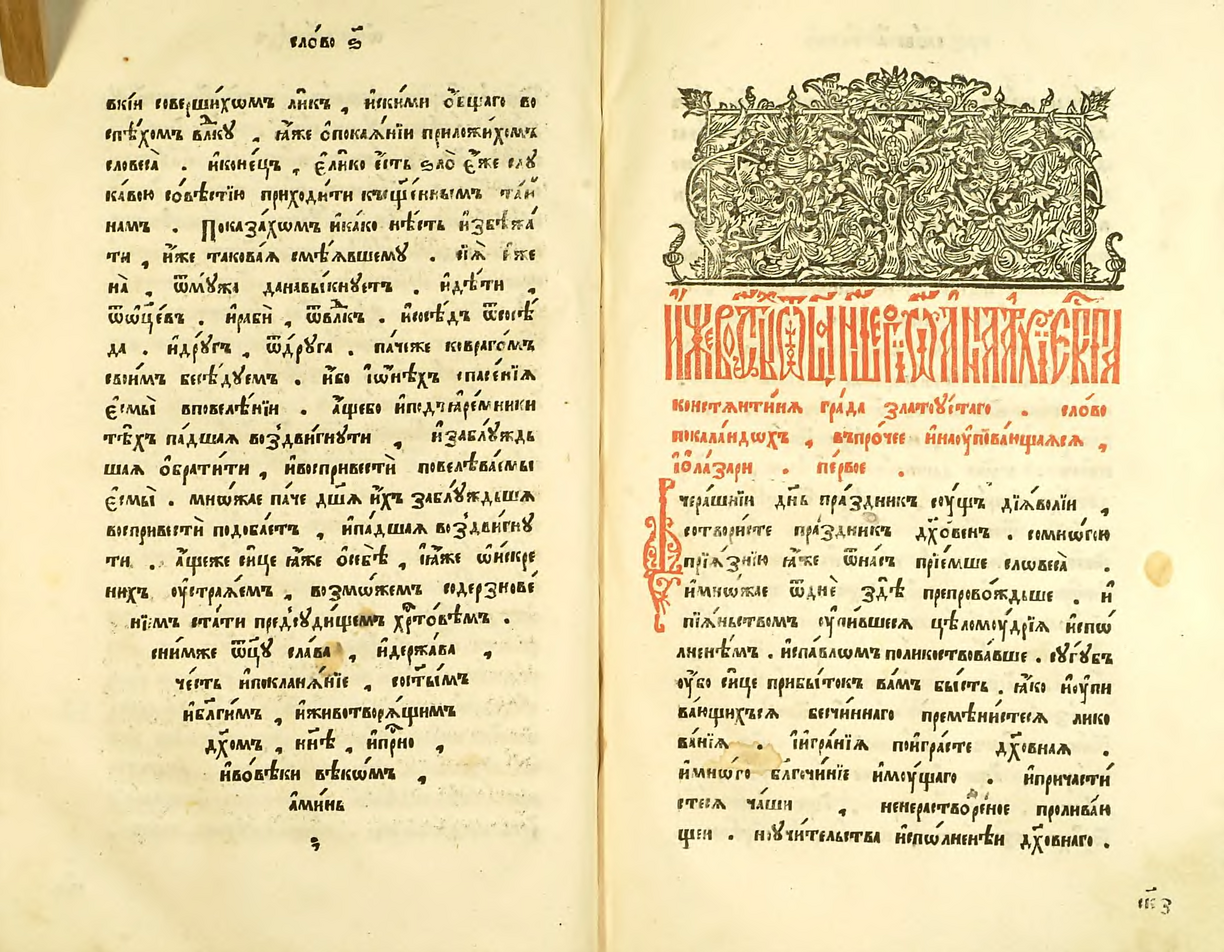 сло́во ѕ҃
вкі́и соверши́хомъ ли́къ , и҆ски́ми ѻ҆́бщаго во
спѣ́хомъ влⷣку , ꙗ҆́же ѡ҆покаѧ́нїи приложи́хомъ
словеса̀ . и҆коне́цъ , є҆ли́ко є҆́сть ѕло̀ є҆́же слу
ка́вою со́вѣстїю приходи́ти късщ҃е́ннымъ та́и
намъ . Показа́хомъ и҆ка́ко нѣ́сть и҆збѣжа́
ти , и҆́же такова́ѧ смѣ́ѧвшему . сїѧ̀ є҆́же
на̀ , ѿмꙋ́жа данавы́кнуетъ . и҆дѣ́ти ,
ѿѻц҃е́въ . и҆рабѝ , ѿвлⷣкъ . и҆сосѣ́дъ ѿсосѣ́
да . и҆дру́гъ , ѿдрꙋ́га . па́чеже совраго́мъ
свои́мъ бесѣ́дуемъ . и҆́бо і҆ѻ҆нѣ́хъ спасе́нїѧ
є҆смы̀ вповелѣ́нїи . а҆́щебо и҆под̾ꙗре́мники
тѣ́хъ па́дшаѧ воз̾дви́гнути , и҆заблу́ждь
шаѧ ѡ҆брати́ти , и҆воспривестѝ повелѣва́емы
є҆смы̀ . мно́жае па́че дш҃а и҆́хъ заблу́ждьшаѧ
воспривестѝ подоба́етъ , и҆па́дшаѧ воз̾дви́гну
ти . а҆́щеже си́це ꙗ҆́же ѡ҆себѣ̀ , і҆ꙗ҆́же ѡ҆и́скре
нихъ оу҆стра́ѧемъ , возмо́жемъ содерзнове́
нїемъ ста́ти предсуди́щемъ хрⷭ҇то́вѣмъ .
сни́мже ѻ҆ц҃ꙋ сла́ва , и҆держа́ва ,
че́сть и҆поклана́нїе , сост҃ы́мъ
и҆бл҃ги́мъ , и҆животворѧ́щимъ
дх҃омъ , нн҃ѣ , и҆прⷭ҇но ,
и҆во́вѣки вѣко́мъ ,
а҆ми́нь
и҆́же во ст҃ы́хъ ѻ҆ц҃а̀ на́шегѡ і҆ѡа́нна а҆рхїеп҃кпа
констѧнти́нѧ гра́да златоу́стаго . сло́во
покала́ндѡхъ , въпро́чее и҆наоу҆пїва́ющаѧсѧ ,
і҆ѻ҆ла́зари . пе́рвое .
Вчера́шнїи дн҃ь пра́здникъ су́щъ дїѧ́волїи ,
сотвори́сте пра́здникъ дх҃о́венъ . сомно́гою
прїѧ́знїю ꙗ҆́же ѿна́съ прїе́мше словеса̀ .
и҆мно́жае ѿднѐ здѣ̀ препрово́ждьше . и҆
пїѧ́ньствомъ оу҆пи́вшесѧ цѣломоу́дрїѧ и҆спо́
лненѣмъ . и҆спа́вломъ поликоствова́вше . сугу́бъ
оу҆́бо си́це прибы́токъ ва́мъ бы́сть . ꙗ҆́ко и҆оу҆пи
ва́ющихъсѧ бесчи́ннаго премѣни́стесѧ лико
ва́нїѧ . і҆игра́нїѧ поигра́сте дх҃о́внаѧ .
и҆мно́го бл҃гочи́нїе и҆моу́щаго . и҆причасти́
стесѧ ча́ши , ненерастворе́ное пролива́ю
щеи . но́учи́тельства и҆спо́лненѣи дх҃о́внаго .
ск҃з